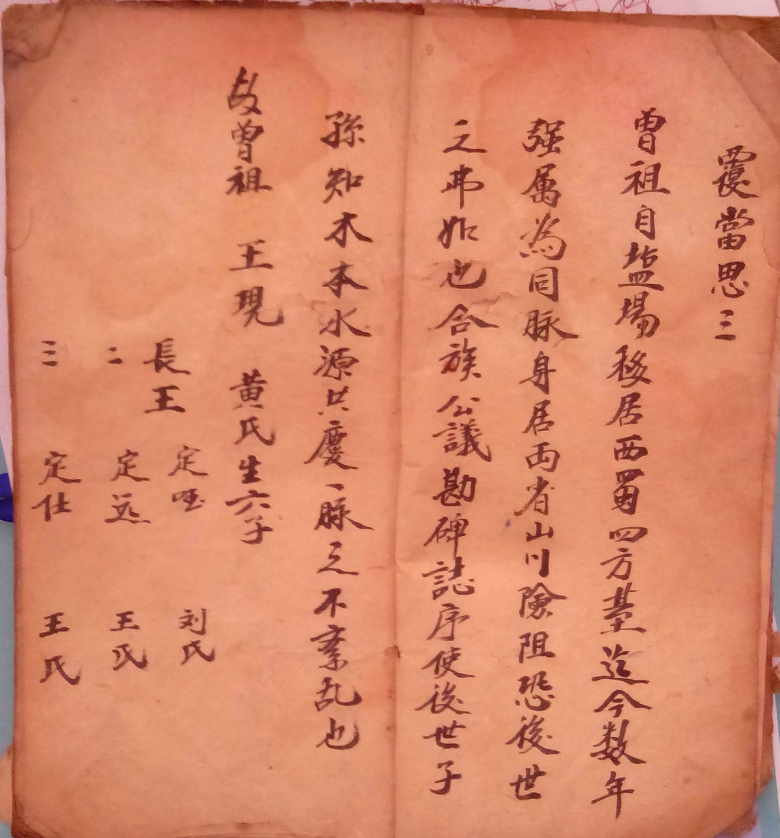 覆當思三
曾祖自塩場移居西蜀四方基迄今数年
强属為同脉身居両省山川險阻恐後世
之弗如也合族公議勘碑誌序使後世子
孫知木本水源共慶一脉之不紊乱也
故曾祖 王現 黄氏生六子
長王 定 刘氏
二 定远 王氏
三 定仕 王氏